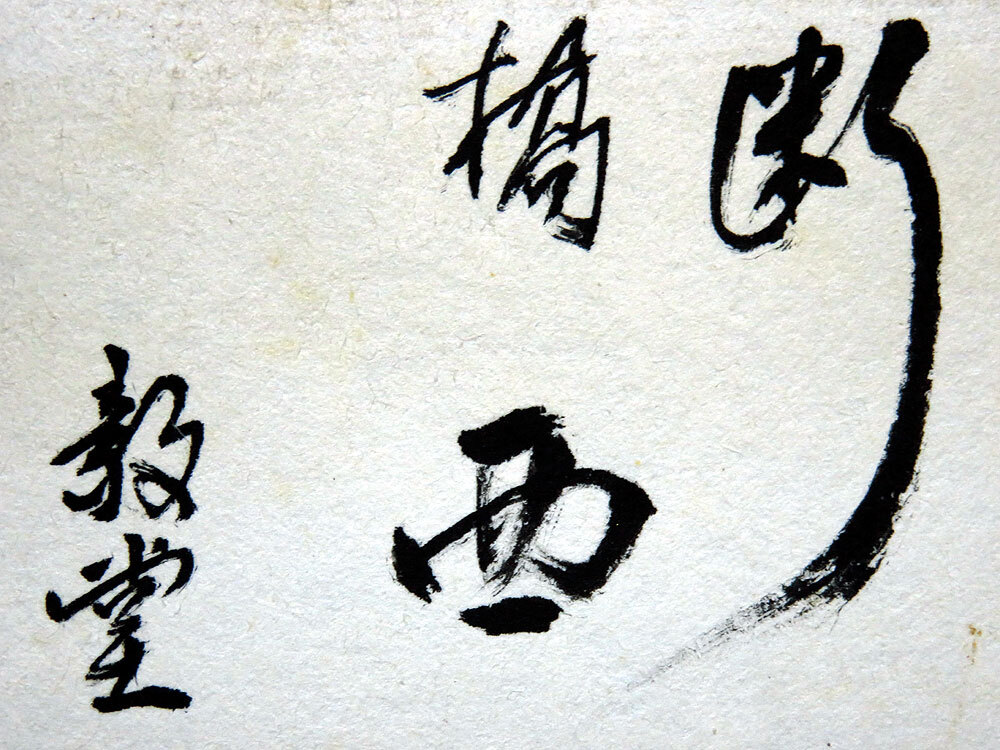 断
橋西
毅堂